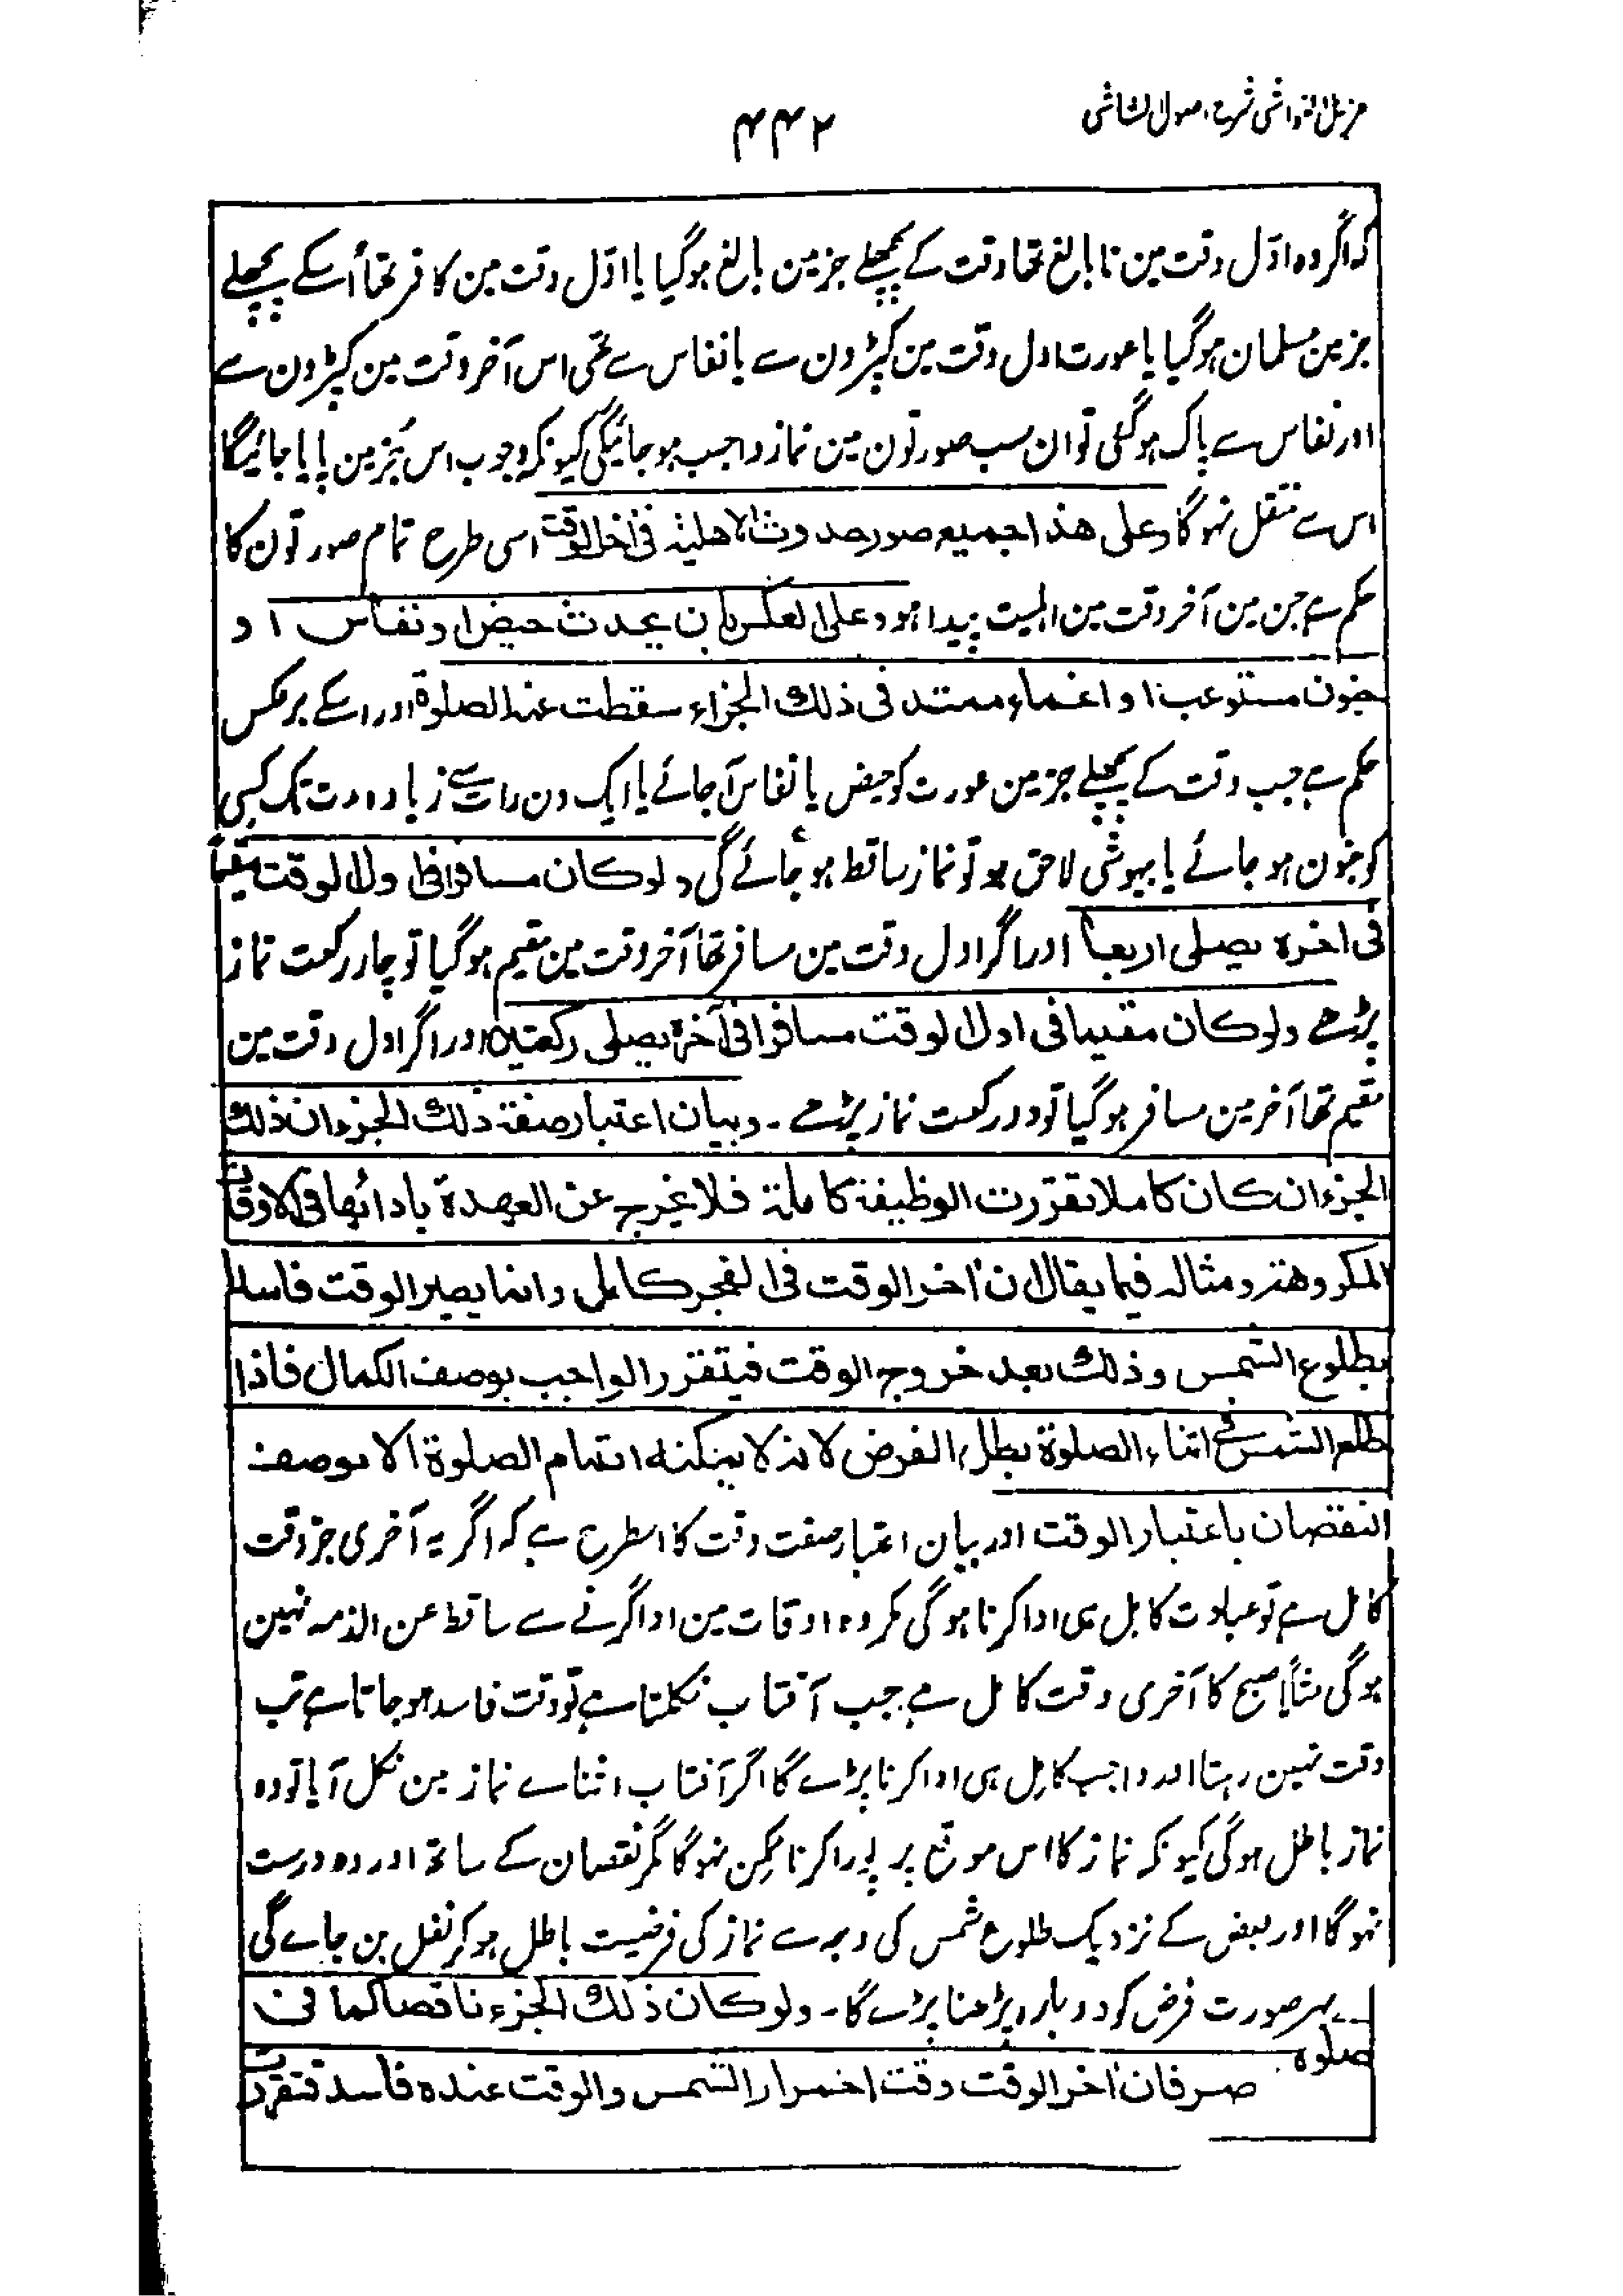 مزیل الغواشی شرح اصول الشاشی
۴۴۲
کہ اگر وہ اوّل وقت مین نابالغ تھا وقت کے پچھلے جز مین بالغ ہوگیا یا اوّل وقت مین کافر تھا اُسکے پچھلے
جز مین مسلمان ہوگیا یا عورت اول وقت مین کپڑون سے یا نفاس سے تھی اس آخر وقت مین کپڑون سے
اور نفاس سے پاک ہوگئی تو ان سب صورتون مین نماز واجب ہوجائیگی کیونکہ وجوب اس جُز مین پایا جائیگا
اس سے منتقل نہوگا وعلی ھذا جمیع صور حدوث الاھلیۃ فی اخر الوقت اسی طرح تمام صورتون کا
حکم ہے جن مین آخر وقت مین اہلیت پیدا ہو وعلی العکس بان یحدث حیض او نفاس او
جنون مستوعب او اغماء ممتد فی ذلک الجزء سقطت عنہ الصلوۃ اور اسکے برعکس
حکم ہے جب وقت کے پچھلے جز مین عورت کو حیض یا نفاس آجائے یا ایک دن رات سے زیادہ مدت تک کسی
کو جنون ہوجائے یا بیہوشی لاحق ہو تو نماز ساقط ہوجائے گی ولو کان مسافرا فی اول الوقت مقیما
فی اخرہ یصلی اربعا اور اگر اول وقت مین مسافر تھا آخر وقت مین مقیم ہوگیا تو چار رکعت نماز
پڑھے ولو کان مقیما فی اول الوقت مسافرا فی آخرہ یصلی رکعتین اور اگر اول وقت مین
مقیم تھا آخر مین مسافر ہوگیا تو دو رکعت نماز پڑھے ۔ وبیان اعتبار صفۃ ذلک الجزء ان ذلک
الجزء ان کان کاملا تقررت الوظیفۃ کاملۃ فلا یخرج عن العھدۃ بادائھا فی الاوقات
المکروھۃ ومثالہ فیما یقال ان اخر الوقت فی الفجر کامل وانما یصیر الوقت فاسدا
بطلوع الشمس وذلک بعد خروج الوقت فیتقرر الواجب بوصف الکمال فاذا
طلع الشمس فی اثناء الصلوۃ بطل الفرض لانہ لا یمکنہ اتمام الصلوۃ الا بوصف
النقصان باعتبار الوقت اور بیان اعتبار صفت وقت کا اسطرح ہے کہ اگر یہ آخری جز وقت
کامل ہے تو عبادت کامل ہی ادا کرنا ہوگی مکروہ اوقات مین ادا کرنے سے ساقط عن الذمہ نہین
ہوگی مثلاً صبح کا آخری وقت کامل ہے جب آفتاب نکلتا ہے تو وقت فاسد ہوجاتا ہے تب
وقت نہین رہتا اور واجب کامل ہی ادا کرنا پڑے گا اگر آفتاب اثناے نماز مین نکل آیا تو وہ
نماز باطل ہوگی کیونکہ نماز کا اس موقع پر پورا کرنا ممکن نہوگا مگر نقصان کے ساتھ اور وہ درست
نہوگا اور بعض کے نزدیک طلوع شمس کی وجہ سے نماز کی فرضیت باطل ہوکر نفل بن جاے گی
بہرصورت فرض کو دوبارہ پڑھنا پڑے گا ۔ ولو کان ذلک الجزء ناقصا کما فی
صلوۃ
صر فان اخر الوقت وقت احمرار الشمس والوقت عندہ فاسد فتقررت